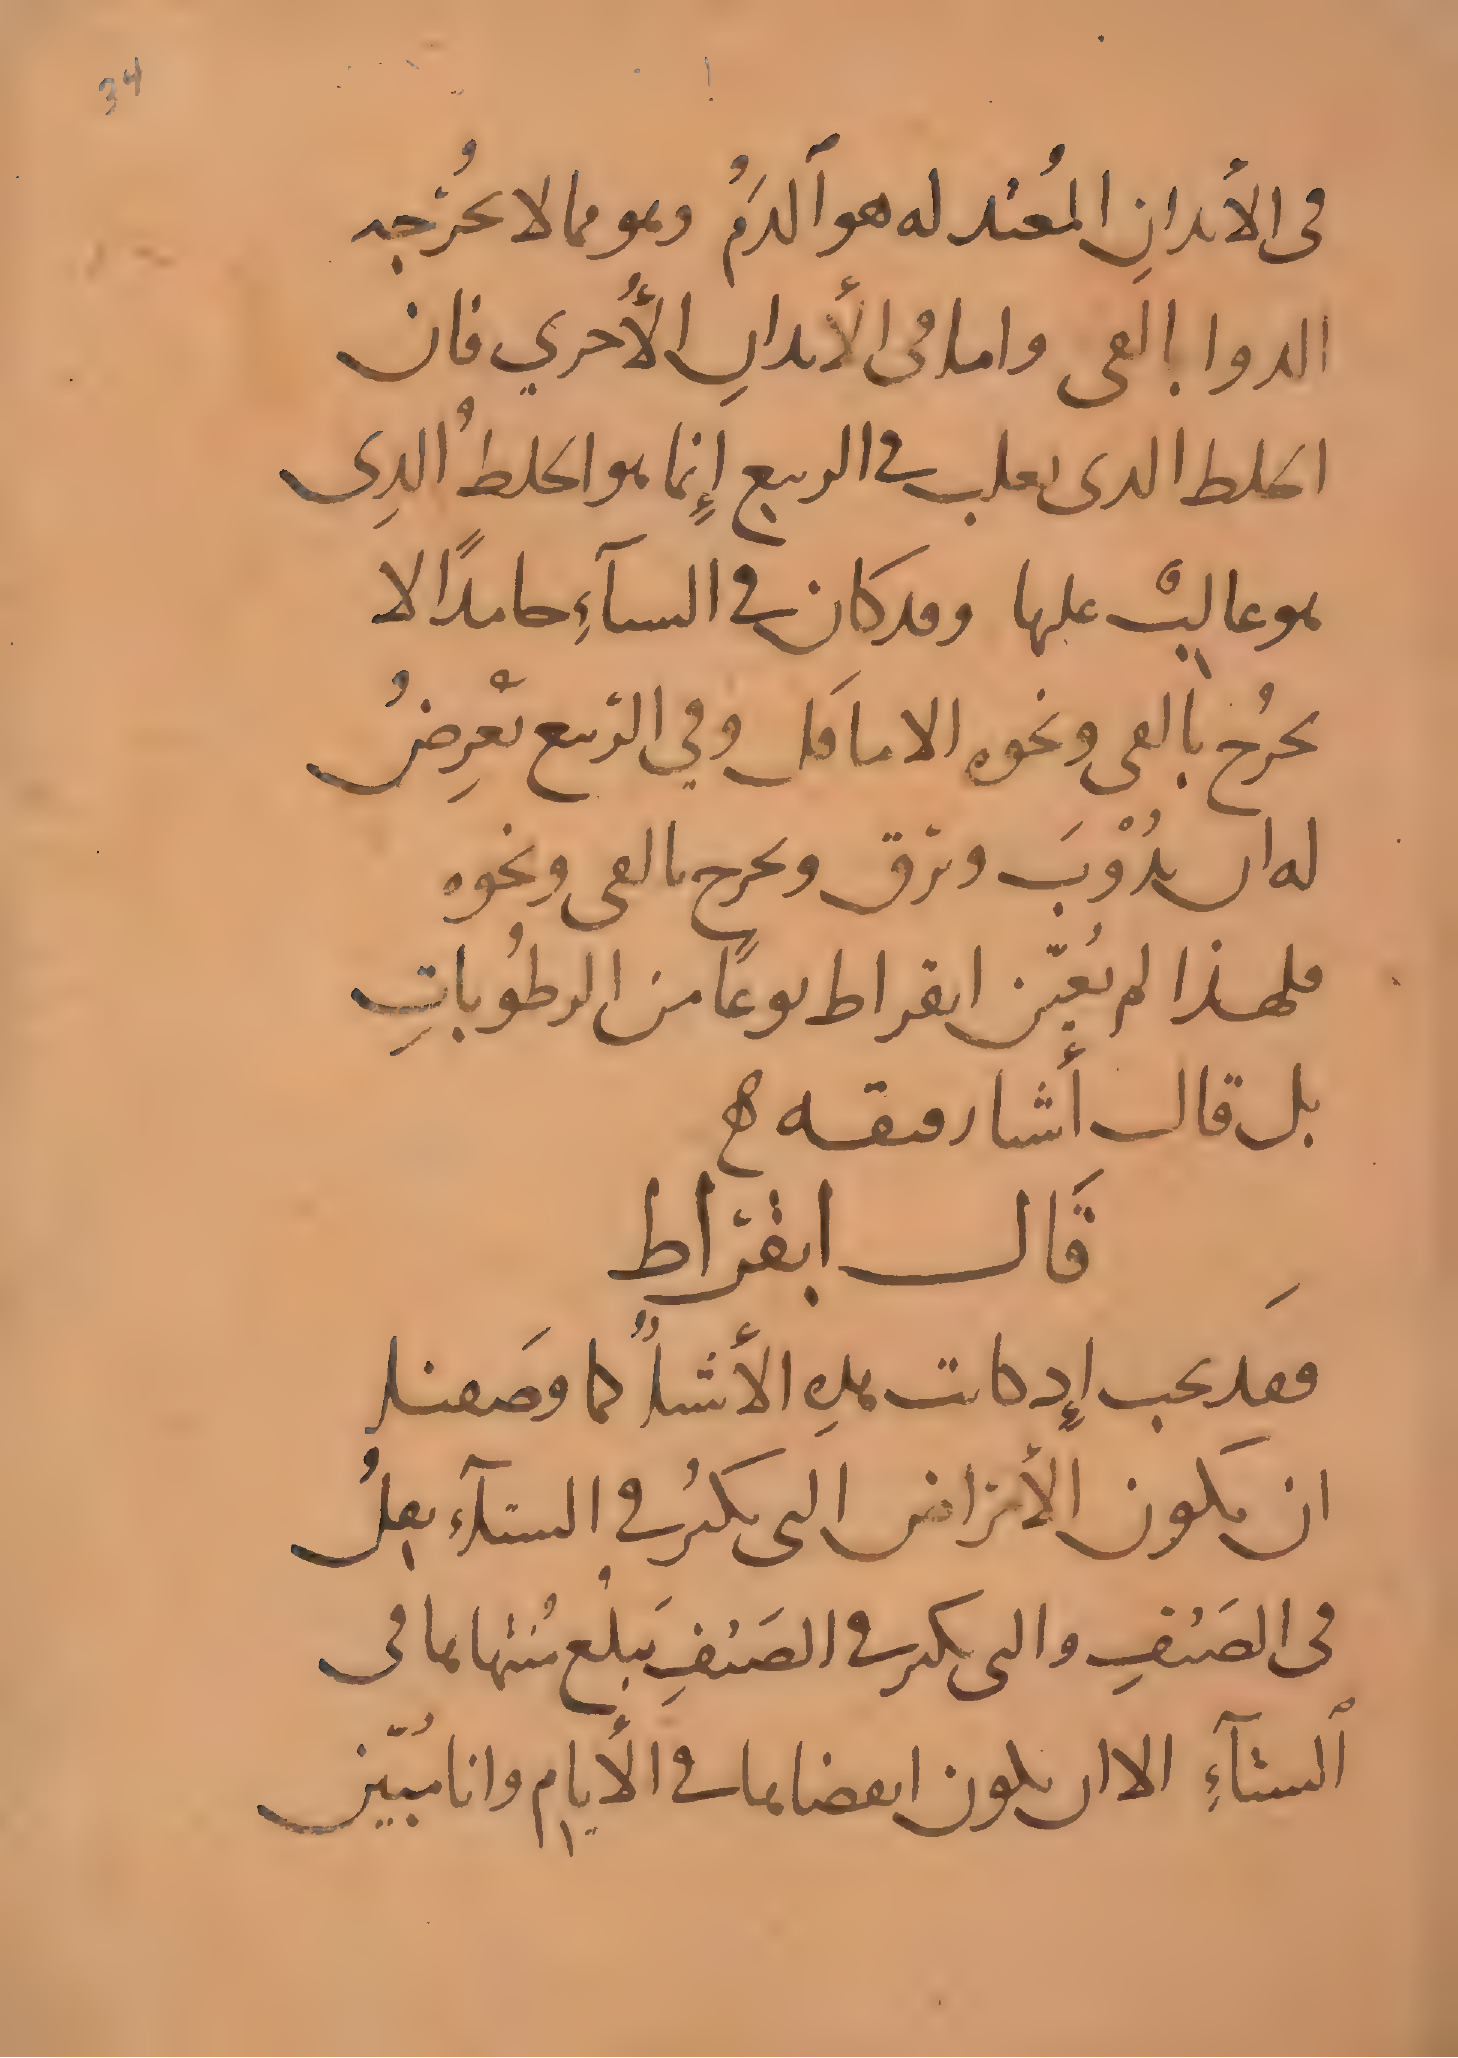 34
فى الأبدانِ المُعتدله هو ٱلدَمُ وهو مما لا يخُرجه
الدوا بالقى واما فى الأبدانِ الأُخري فان
الخلط الذى يغلب في الربيع إنما هو الخلطُ الذِى
هو غالبٌ عليها وقد كان في الشتآءِ جامدًا لا
يخرُج بالقى ونحوهِ الا ما قَل وفي الربيع يَعْرِضُ
له ان يذُوْبَ ويرق ويخرج بالقى ونحوه
فلهذا لم يُعيّن ابقراط نوعًا من الرطُوباتِ
بل قال أشار فيقه
قَال ابقراط
فقَد يجب إذ كانت هذِه الأشيآُ كما وصَفنا
ان تكون الأَمراض التى تكثُر في الشتآء تقِلُ
فى الصَيْفِ والتى تكثر في الصَيْفِ يَبلْغ مُنتهاها فى
ٱلشتآءِ الا ان يكون انقضاها في الأيام وانا مُبيّن